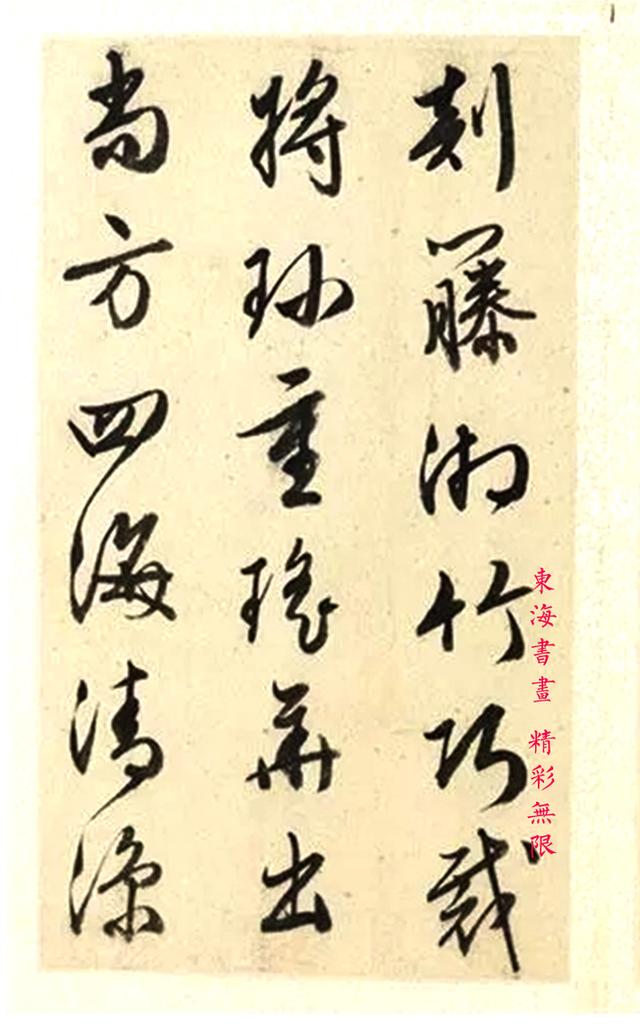 剡藤湘竹巧裁
將珎重瑤華出
尚方四海清涼
東海書畫 精彩無限